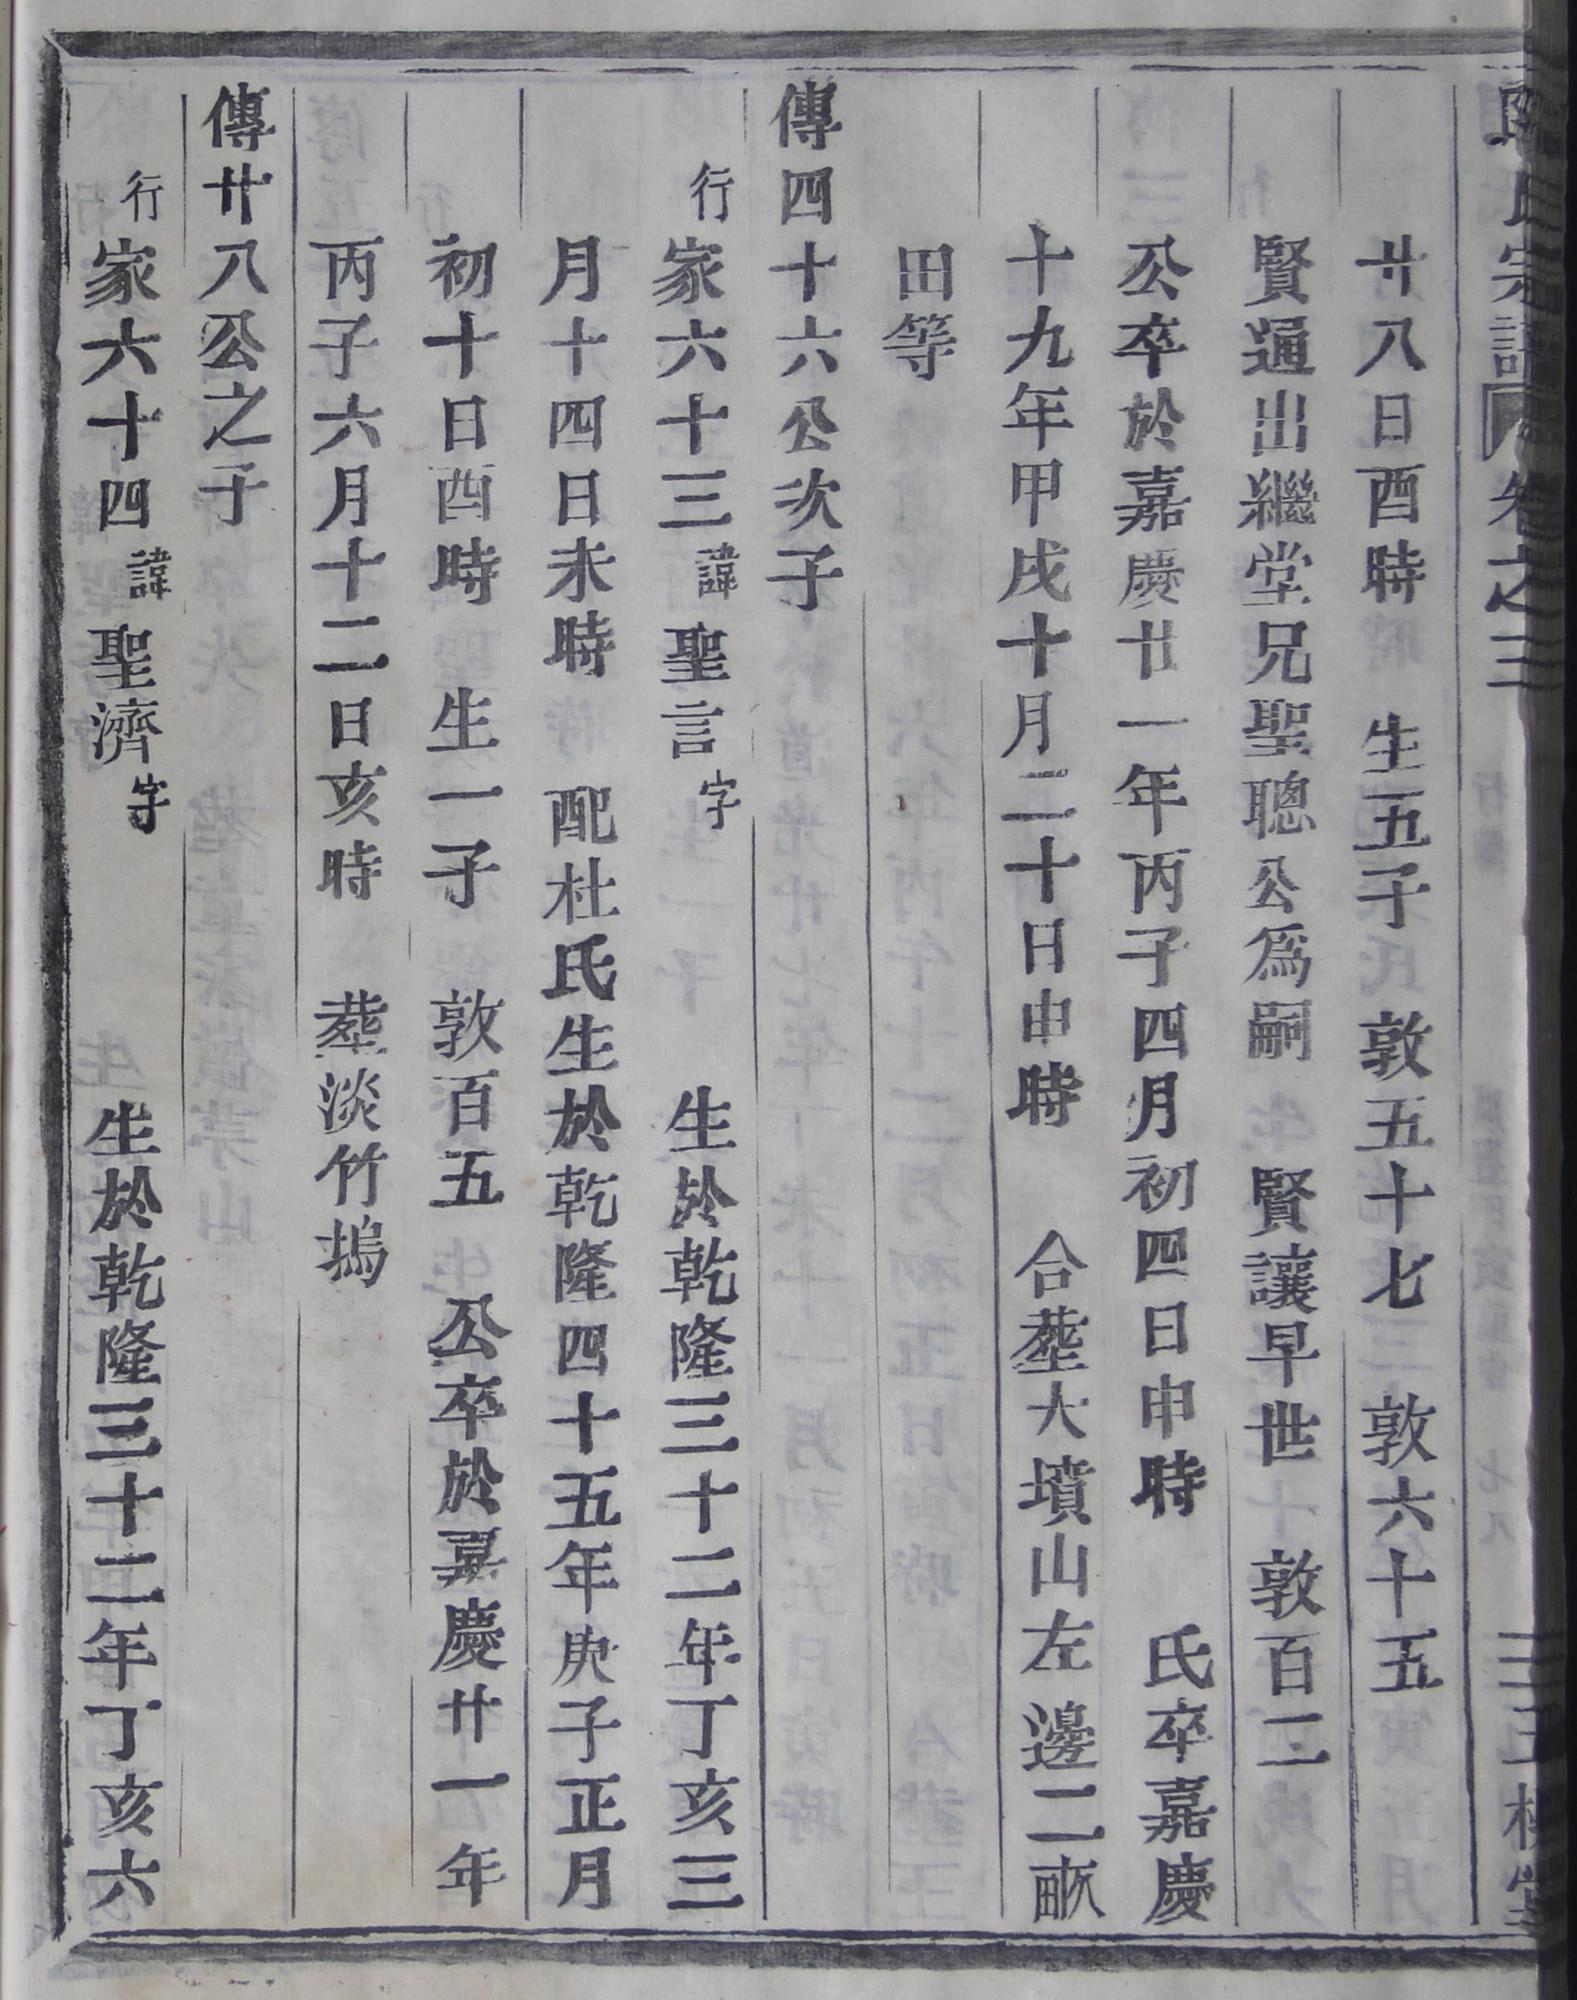 氏宗譜 卷之三 三
廿八日酉時 生五子 敦五十七 敦六十五
賢通出繼堂兄聖聰公為嗣 賢讓早世 敦百二
公卒於嘉慶廿一年丙子四月初四日申時 氏卒嘉慶
十九年甲戌十月二十日申時 合塟大墳山左邊二畝
田等
傳四十六公次子
行家六十三諱聖言字 生於乾隆三十二年丁亥三
月十四日未時 配杜氏生於乾隆四十五年庚子正月
初十日酉時 生一子 敦百五 公卒於嘉慶廿一年
丙子六月十二日亥時 塟淡竹塢
傳廿八公之子
行家六十四諱聖濟字 生於乾隆三十二年丁亥六